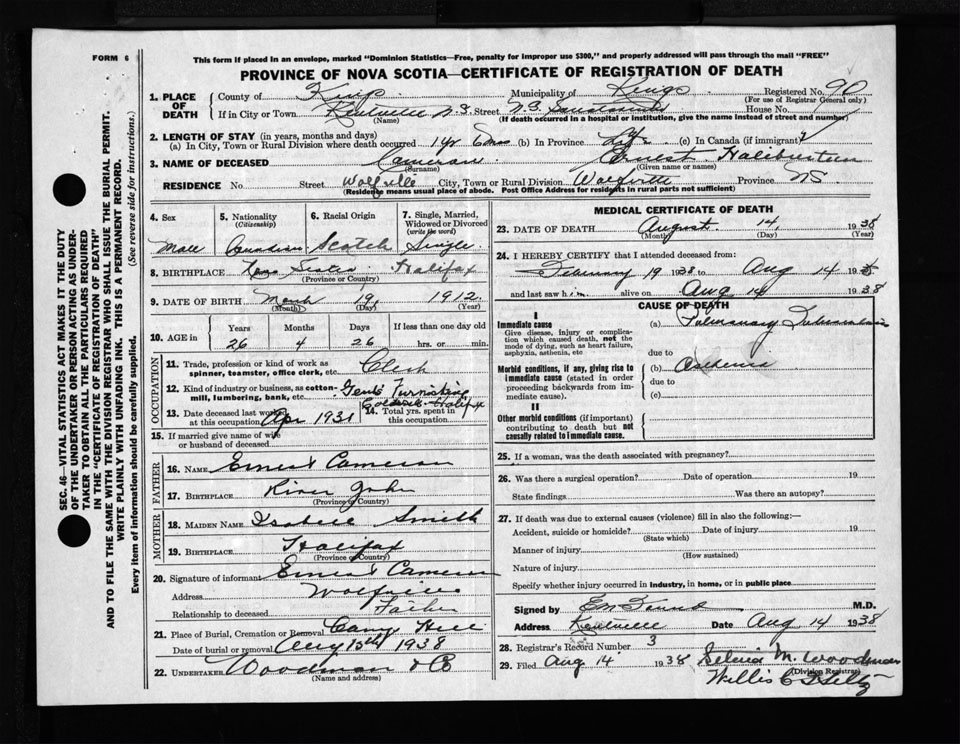 This form if placed in an envelope, marked "Dominion Statistics—Free, penalty for improper use $300," and properly addressed will pass through the mail "FREE"
FORM 6
PROVINCE OF NOVA SCOTIA—CERTIFICATE OF REGISTRATION OF DEATH
1. PLACE OF DEATH County of Kings Municipality of Kings Registered No. 90
(For use of Registrar General only)
If in City or Town Kentville N.S. Street N.S. Sanatorium House No.
(Name) (If death occurred in a hospital or institution, give the name instead of street and number)
2. LENGTH OF STAY (in years, months and days)
(a) In City, Town or Rural Division where death occurred 1 yr (b) In Province Life (c) In Canada (if immigrant)
3. NAME OF DECEASED Cameron Ernest Haliburton
(Surname) (Given name or names)
RESIDENCE No Street Wolfville City, Town or Rural Division Wolfville Province N.S.
(Residence means usual place of abode. Post Office Address for residents in rural parts not sufficient)
4. Sex Male
5. Nationality (Citizenship) Canadian
6. Racial Origin Scotch
7. Single, Married, Widowed or Divorced (write the word) Single
8. BIRTHPLACE Nova Scotia Halifax
(Province or Country)
9. DATE OF BIRTH March 19, 1912
(Month) (Day) (Year)
10. AGE in Years Months Days If less than one day old
26 4 26 hrs. or min.
OCCUPATION
11. Trade, profession or kind of work as spinner, teamster, office clerk, etc. Clerk
12. Kind of industry or business, as cotton-mill, lumbering, bank, etc. Gents Furnishing
Halifax
13. Date deceased last worked at this occupation Apr 1931
14. Total yrs. spent in this occupation
15. If married give name of wife or husband of deceased
FATHER
16. NAME Ernest Cameron
17. BIRTHPLACE River John
(Province or Country)
MOTHER
18. MAIDEN NAME Isabele Smith
19. BIRTHPLACE Halifax
(Province or Country)
20. Signature of informant Ernest Cameron
Address Wolfville
Relationship to deceased Father
21. Place of Burial, Cremation or Removal Camp Hill
Date of burial or removal Aug 15th 1938
22. UNDERTAKER Woodman & Co
(Name and address)
MEDICAL CERTIFICATE OF DEATH
23. DATE OF DEATH August 14, 1938
(Month) (Day) (Year)
24. I HEREBY CERTIFY that I attended deceased from:
February 19 1938 to Aug 14 193
and last saw him alive on Aug 14 1938
CAUSE OF DEATH
I
Immediate cause
Give disease, injury or complication which caused death, not the mode of dying, such as heart failure, asphyxia, asthenia, etc
(a) Pulmonary Tuberculosis
due to
Morbid conditions, if any, giving rise to immediate cause (stated in order proceeding backwards from immediate cause).
(b) Asthenia
due to
(c)
II
Other morbid conditions (if important) contributing to death but not causally related to immediate cause.
25. If a woman, was the death associated with pregnancy?
26. Was there a surgical operation? Date of operation 19
State findings Was there an autopsy?
27. If death was due to external causes (violence) fill in also the following:—
Accident, suicide or homicide? Date of injury 19
(State which)
Manner of injury
(How sustained)
Nature of injury
Specify whether injury occurred in industry, in home, or in public place
Signed by M.D.
Address Kentville Date Aug 14 1938
28. Registrar's Record Number 3
29. Filed Aug 14 1938 Selena M. Woodman
(Division Registrar)
SEC. 46—VITAL STATISTICS ACT MAKES IT THE DUTY
OF THE UNDERTAKER OR PERSON ACTING AS UNDER-
TAKER TO OBTAIN ALL THE PARTICULARS REQUIRED
IN THE "CERTIFICATE OF REGISTRATION OF DEATH"
AND TO FILE THE SAME WITH THE DIVISION REGISTRAR WHO SHALL ISSUE THE BURIAL PERMIT.
WRITE PLAINLY WITH UNFADING INK. THIS IS A PERMANENT RECORD.
Every item of information should be carefully supplied. (See reverse side for instructions.)